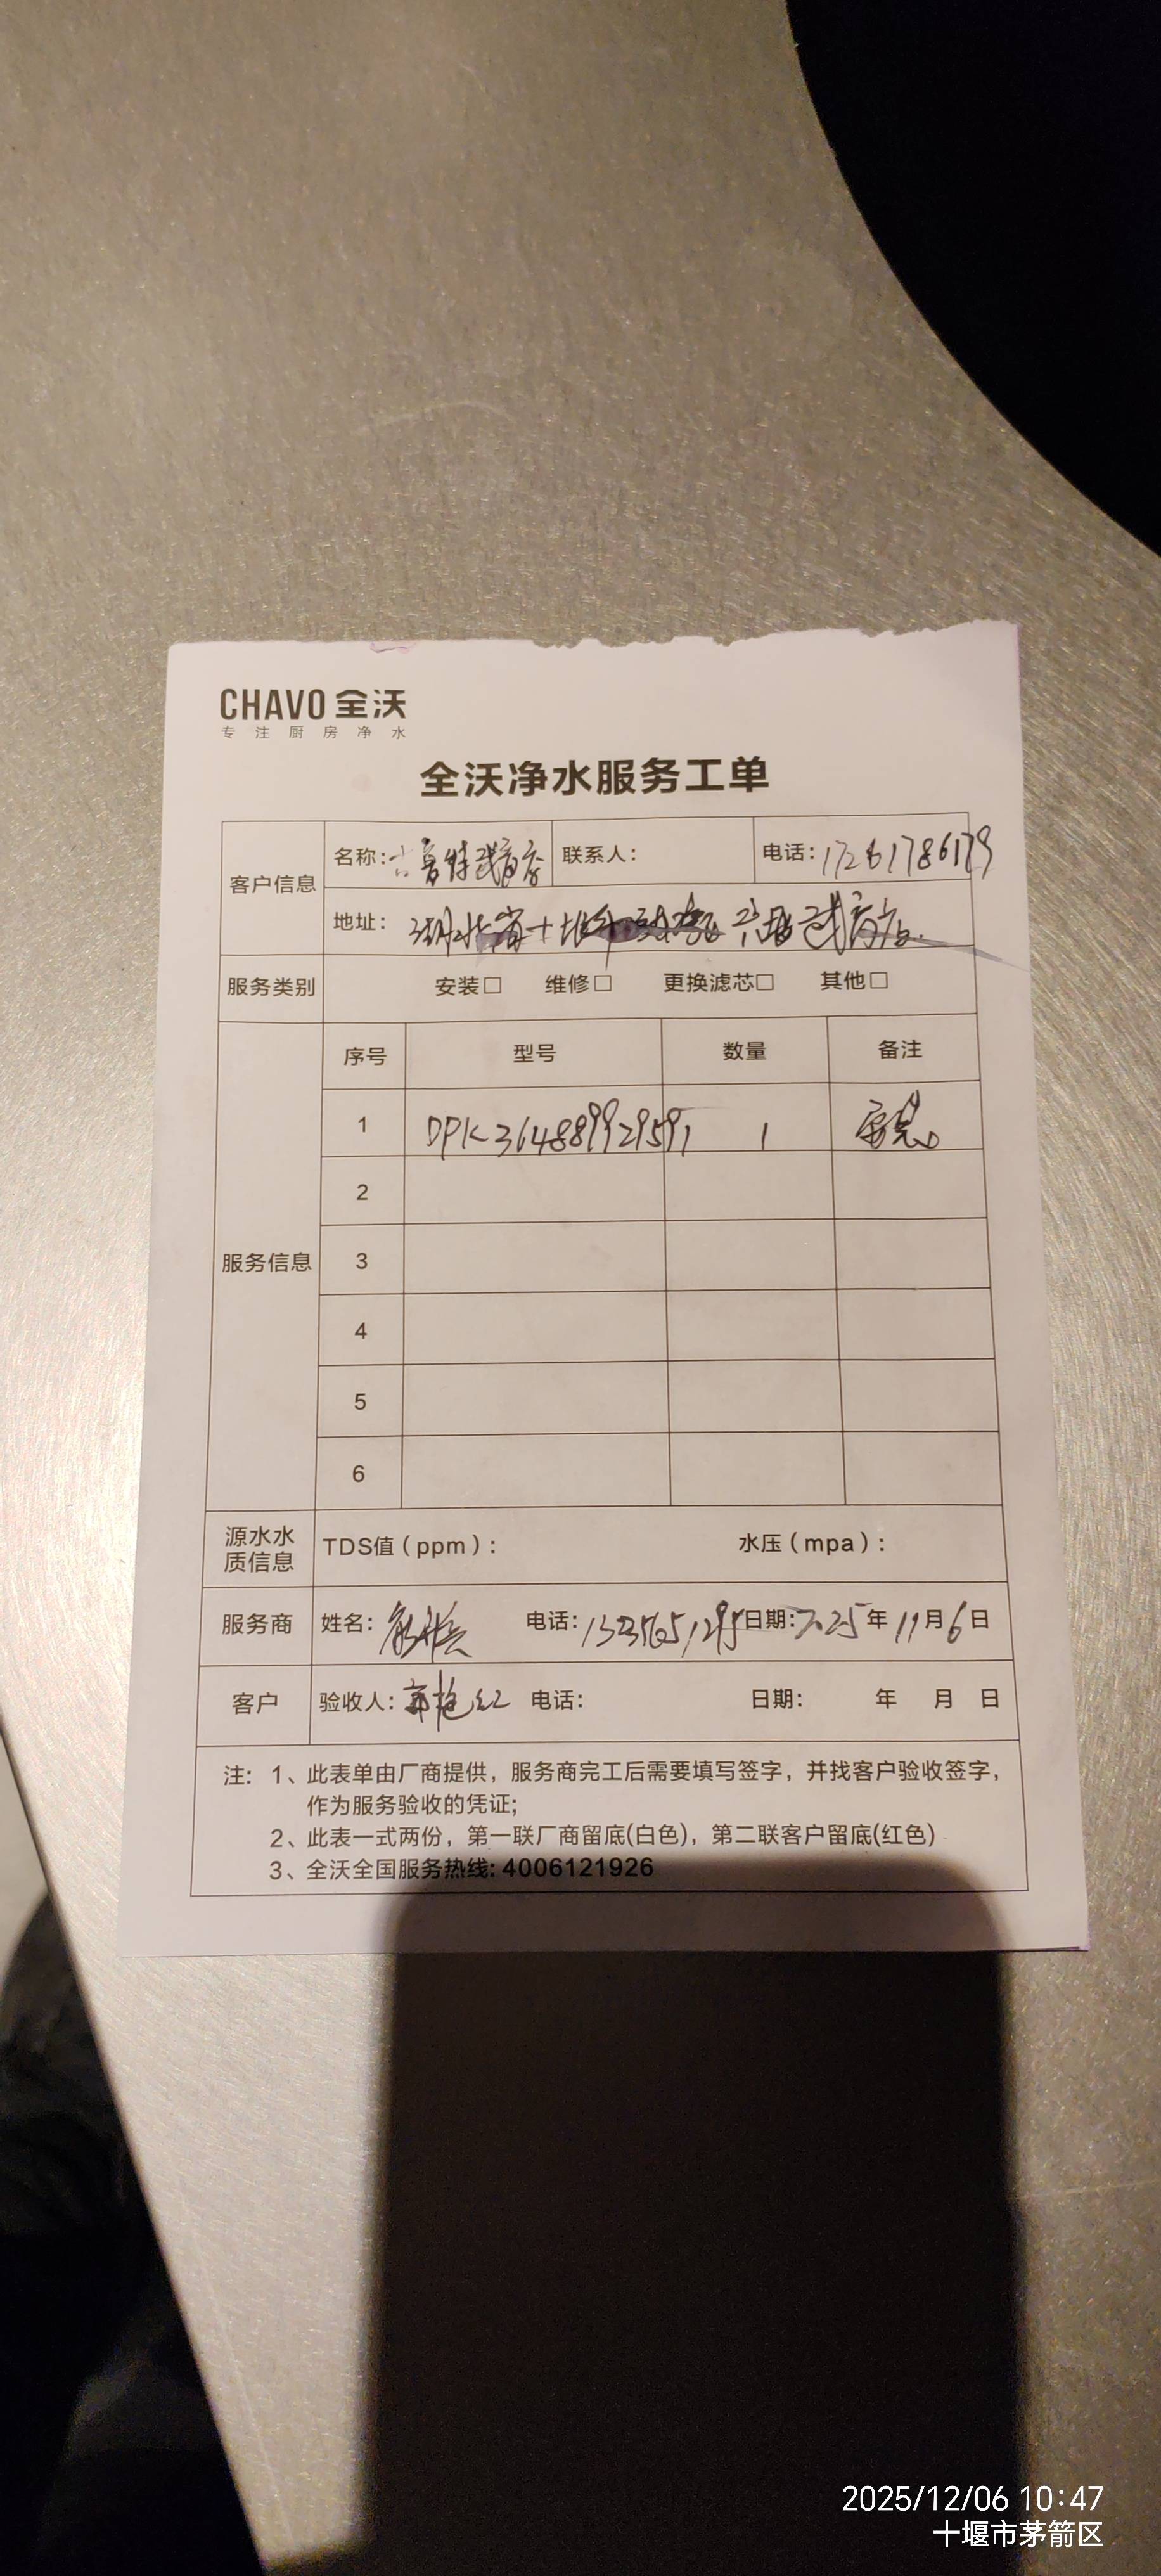 CHAVO 全沃
专注厨房净水
全沃净水服务工单
客户信息
名称: 联系人: 电话: 17261786179
地址: 湖北省十堰市
服务类别 安装□ 维修□ 更换滤芯□ 其他□
服务信息
序号 型号 数量 备注
1 DPK364889929591 1
2
3
4
5
6
源水水质信息 TDS值(ppm): 水压(mpa):
服务商 姓名: 电话: 日期: 2025年11月6日
客户 验收人: 电话: 日期: 年 月 日
注: 1、此表单由厂商提供，服务商完工后需要填写签字，并找客户验收签字，
作为服务验收的凭证;
2、此表一式两份，第一联厂商留底(白色)，第二联客户留底(红色)
3、全沃全国服务热线: 4006121926
2025/12/06 10:47
十堰市茅箭区